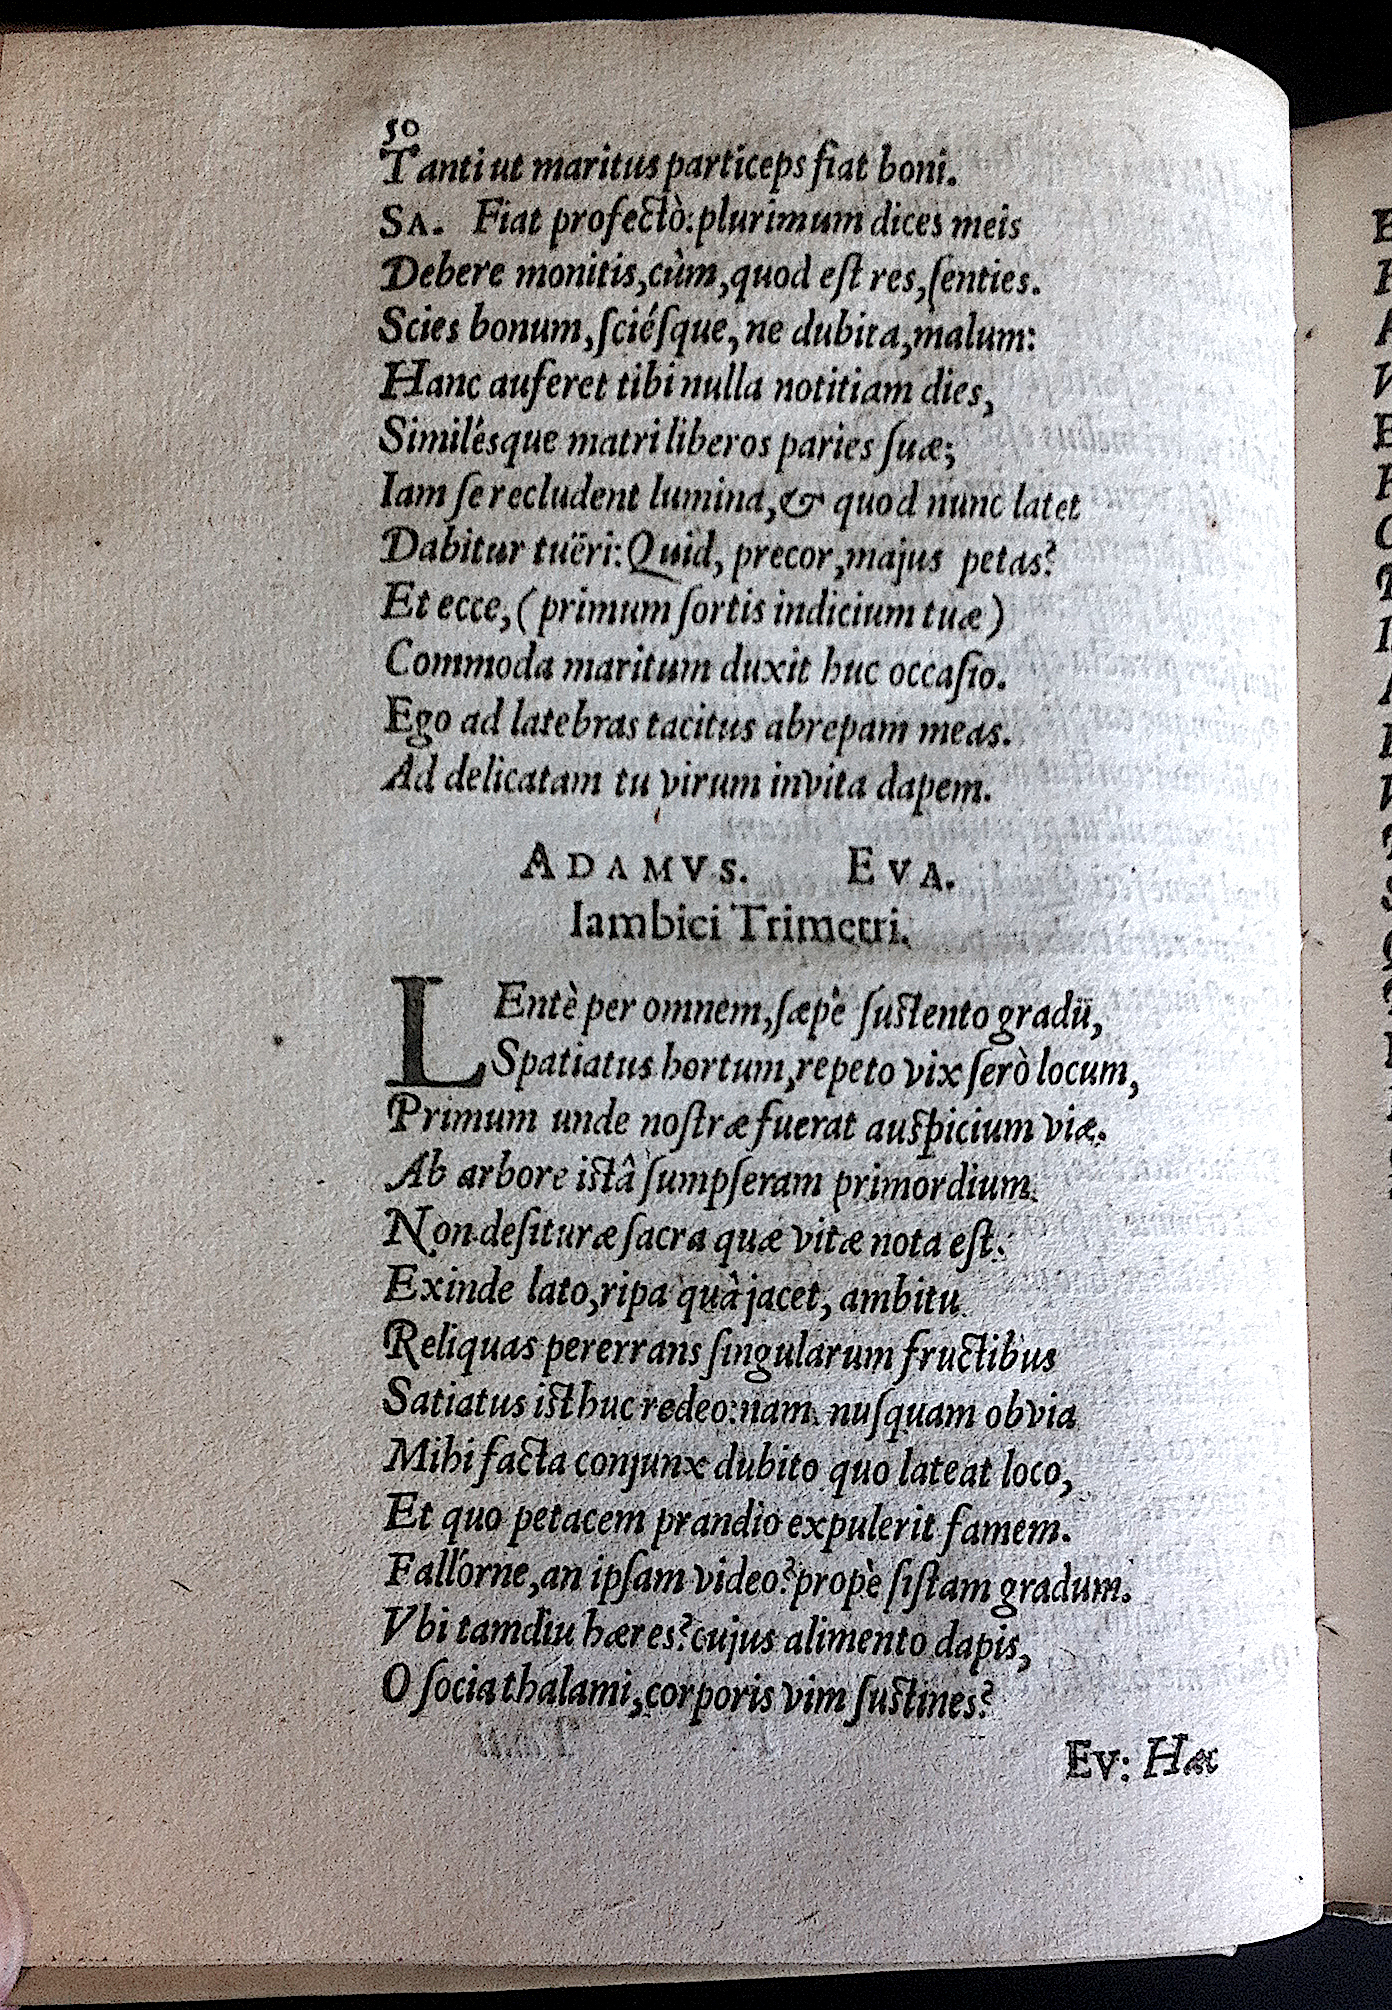 50
Tanti ut maritus particeps fiat boni.
SA. Fiat profectò: plurimum dices meis
Debere monitis, cùm, quod eſt res, ſenties.
Scies bonum, ſciéſque, ne dubita, malum:
Hanc auferet tibi nulla notitiam dies,
Similésque matri liberos paries ſuæ;
Iam ſe recludent lumina, & quod nunc latet
Dabitur tuëri: Quid, precor, majus petas?
Et ecce, (primum ſortis indicium tuæ)
Commoda maritum duxit huc occaſio.
Ego ad latebras tacitus abrepam meas.
Ad delicatam tu virum invita dapem.
ADAMVS. EVA.
Iambici Trimetri.
LEntè per omnem, ſæpè ſuſtento gradũ,
Spatiatus hortum, repeto vix ſerò locum,
Primum unde noſtræ fuerat auſpicium viæ.
Ab arbore iſtâ ſumpſeram primordium
Non deſituræ ſacra quæ vitæ nota eſt.
Exinde lato, ripa quà jacet, ambitu
Reliquas pererrans ſingularum fructibus
Satiatus iſthuc redeo: nam nuſquam obvia
Mihi facta conjunx dubito quo lateat loco,
Et quo petacem prandio expulerit famem.
Fallorne, an ipſam video? propè ſiſtam gradum.
Vbi tamdiu hæres? cujus alimento dapis,
O ſocia thalami, corporis vim ſuſtines?
EV: Hæc